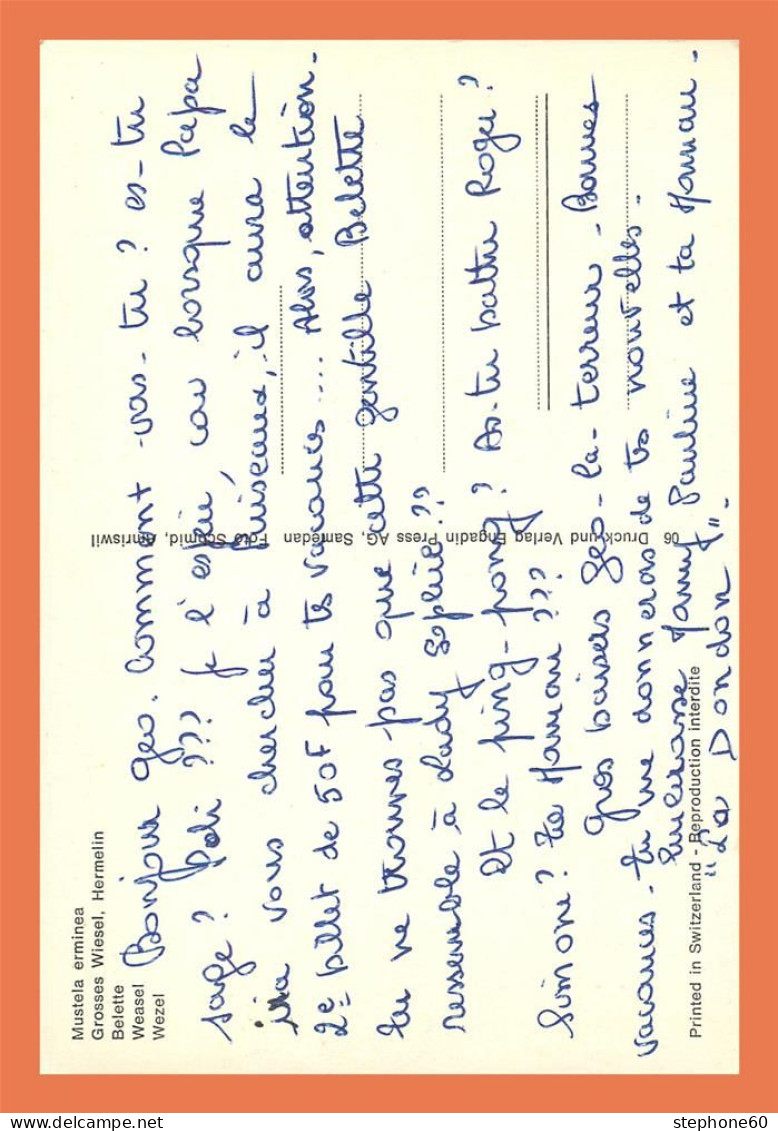 Mustela erminea
Grosses Wiesel, Hermelin
Belette
Weasel
Wezel
Bonjour Geo. Comment vas-tu ? es-tu
sage ? Poli ??? Je l'espère, car lorsque Papa
ira vous chercher à Puiseaux, il aura le
2e billet de 50F pour tes vacances .... Alors, attention.
tu ne trouves pas que cette gentille Belette
ressemble à Lady Sophie ??
Et le ping-pong ? As-tu battu Roger ?
Simone ? Ta Maman ???
Gros baisers Geo-la-terreur. Bonnes
vacances. tu me donneras de tes nouvelles.
Embrasse Pauline et ta Maman.
"La Dondon".
06 Druck und Verlag Engadin Press AG, Samedan Foto Schmid, Amriswil
Printed in Switzerland - Reproduction interdite
stephone60